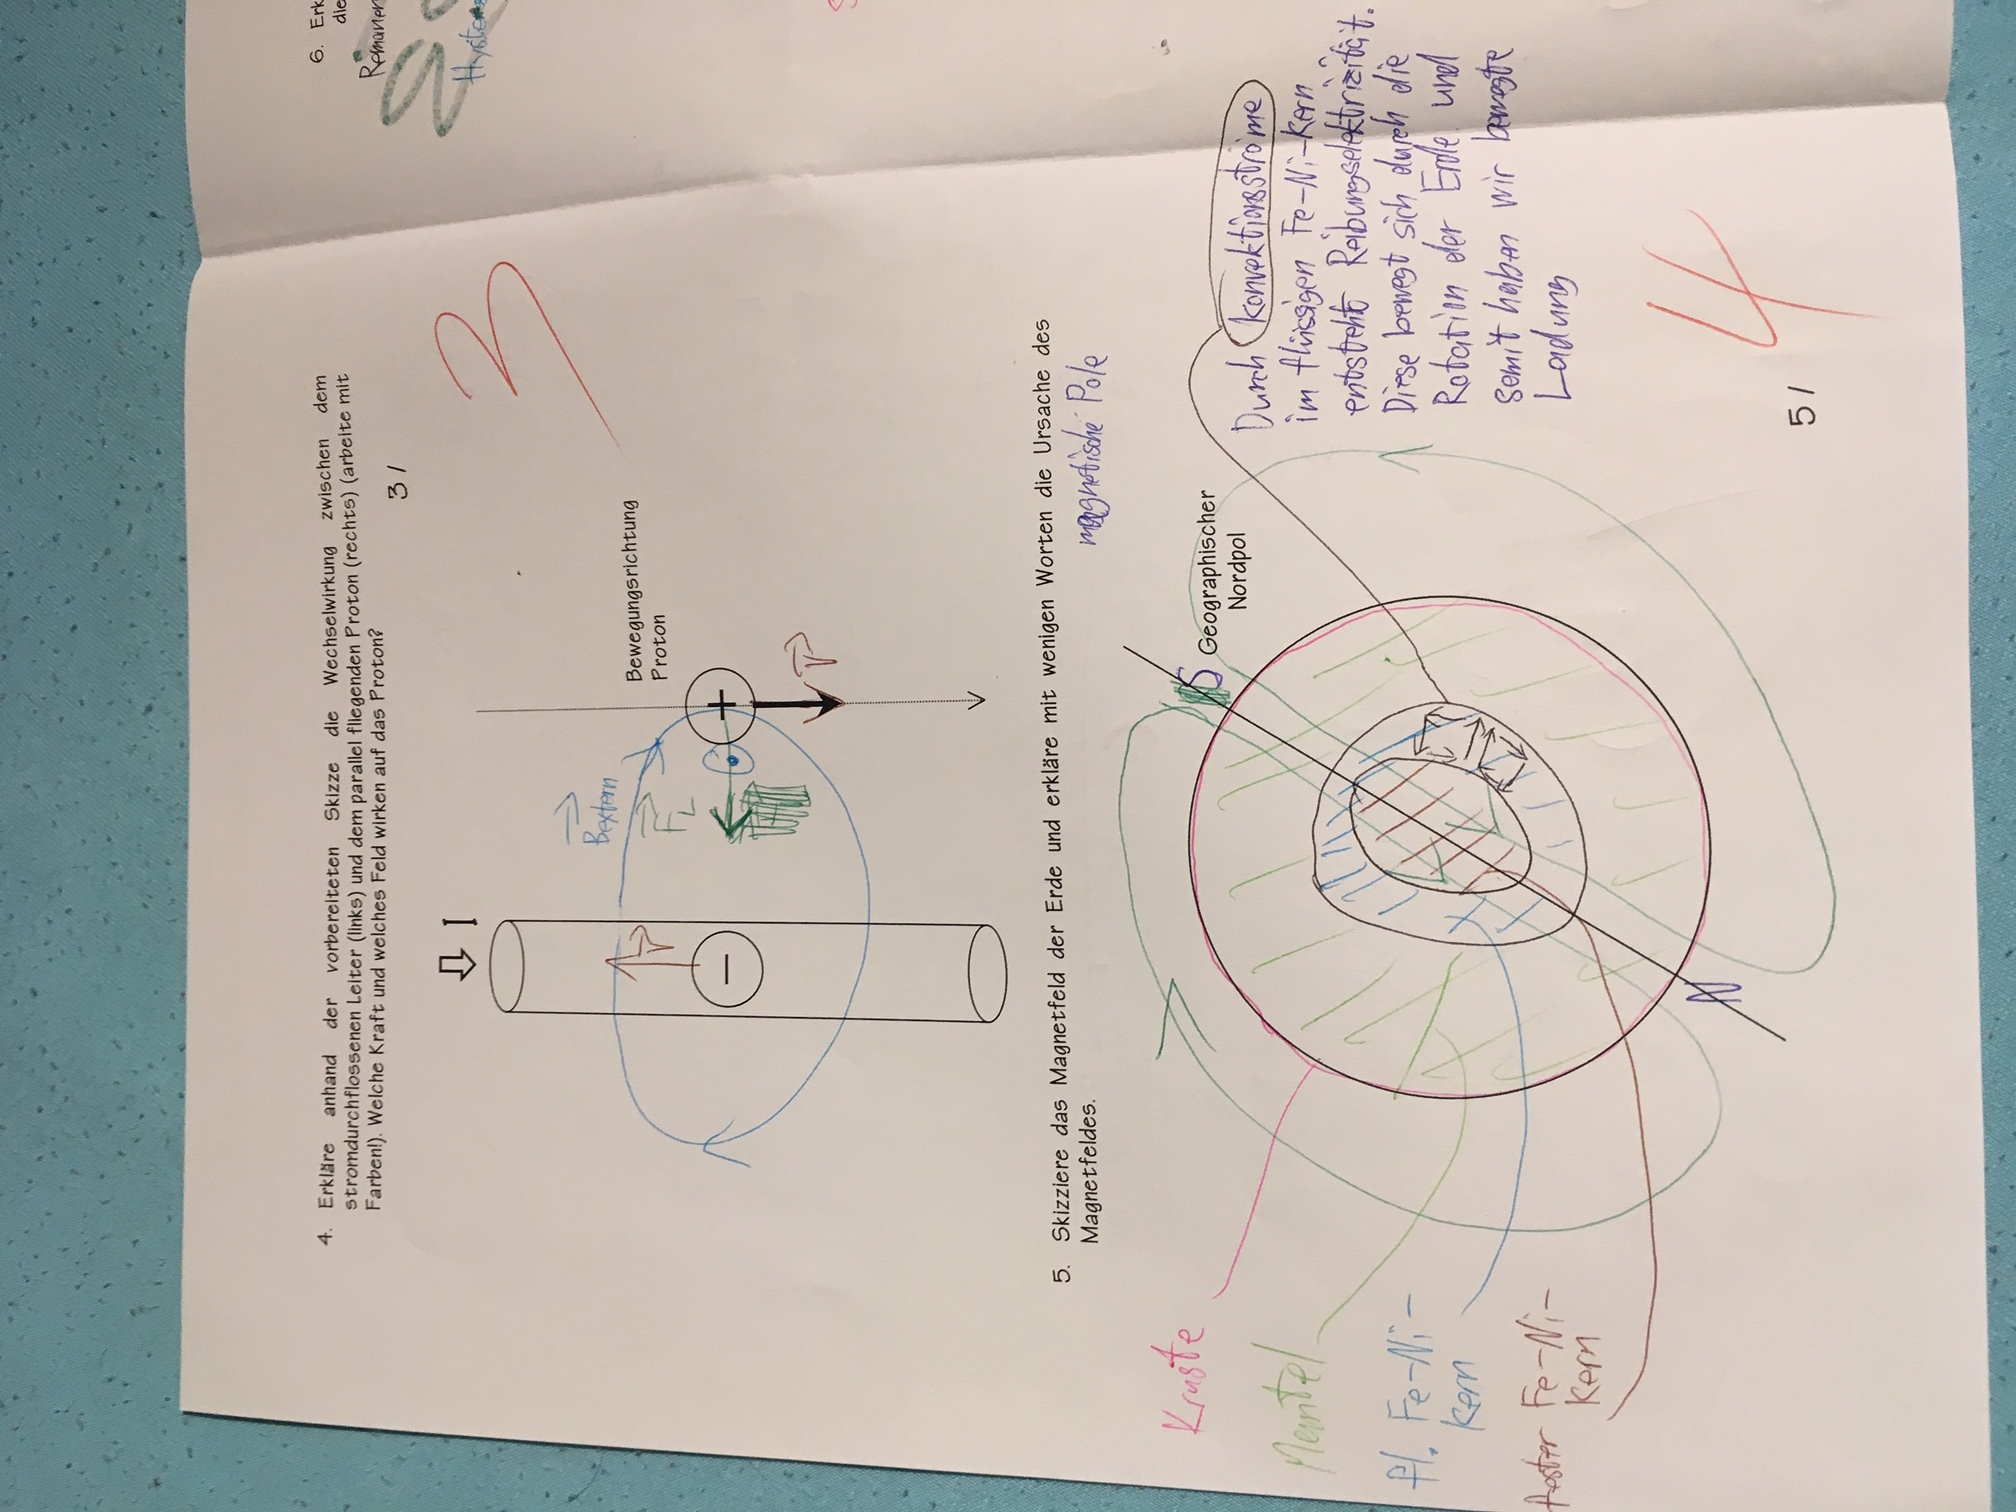 4. Erkläre anhand der vorbereiteten Skizze die Wechselwirkung zwischen dem
stromdurchflossenen Leiter (links) und dem parallel fliegenden Proton (rechts) (arbeite mit
Farben!). Welche Kraft und welches Feld wirken auf das Proton?
3 /
3
I
Bextern
v
F_L
Bewegungsrichtung
Proton
−
+
v
5. Skizziere das Magnetfeld der Erde und erkläre mit wenigen Worten die Ursache des
Magnetfeldes.
magnetische Pole
Kruste
Mantel
fl. Fe-Ni-
Kern
fester Fe-Ni-
Kern
S
Geographischer
Nordpol
N
Durch Konvektionsströme
im flüssigen Fe-Ni-Kern
entsteht Reibungselektrizität.
Diese bewegt sich durch die
Rotation der Erde und
somit haben wir bewegte
Ladung
5 /
4
6. Erk
die
Remanen
Hyste